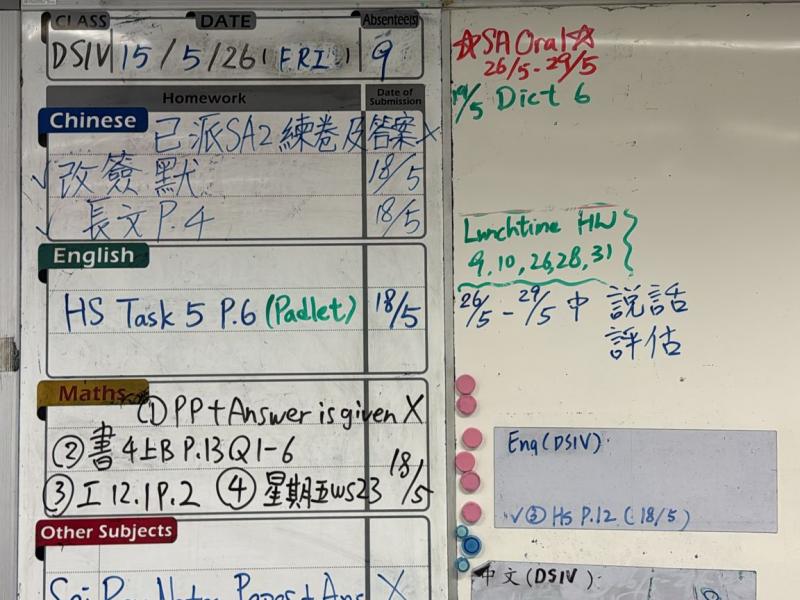 CLASS DATE Absentee(s)
DSIV 15/5/26 (FRI) 9
Homework Date of Submission
Chinese
已派SA2練卷及答案 X
✓ 改簽默 18/5
✓ 長文P.4 18/5
English
HS Task 5 P.6 (Padlet) 18/5
Maths
① PP + Answer is given X
② 書4上B P.13 Q1-6
③ 工12.1 P.2 ④ 星期五ws23 18/5
Other Subjects
Notes Pages + Ans X
☆SA Oral☆
26/5 - 29/5
19/5 Dict 6
Lunchtime HW
9, 10, 26, 28, 31
26/5 - 29/5 中 說話
評估
Eng (DSIV)
✓ ③ HS P.12 (18/5)
中文(DSIV):